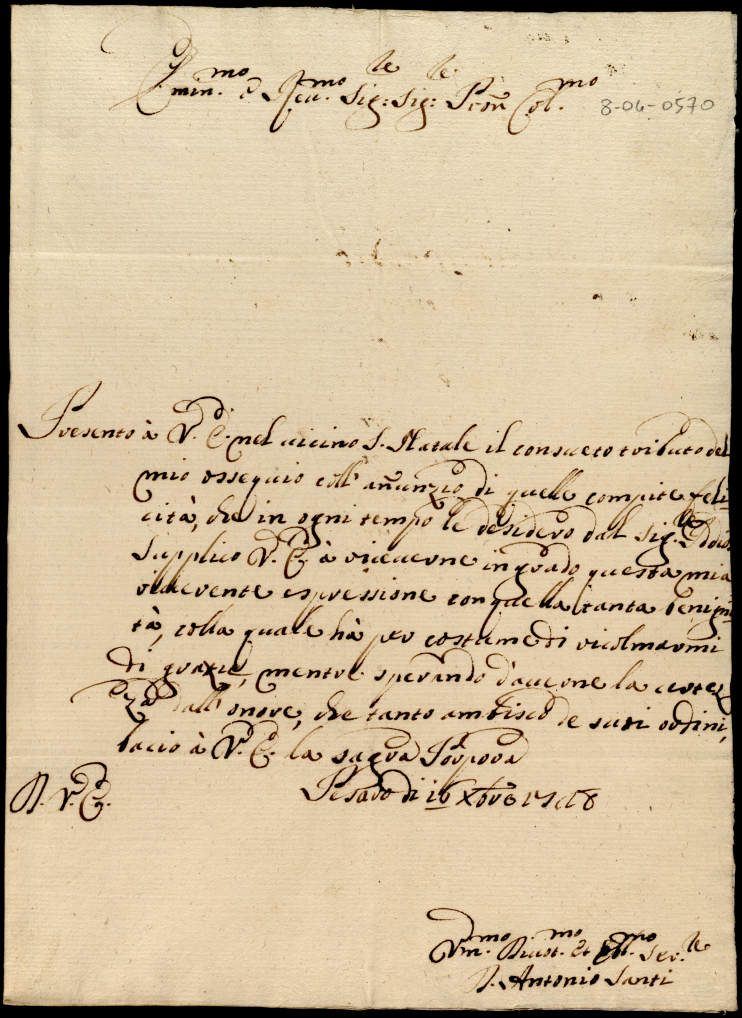 Emin.mo e Reu.mo Sig:re Sig:re Pron Col.mo
8-04-0570
Presento à V.E. nel uicino S. Natale il consueto tributo del
mio ossequio coll'anunzio di quelle compite feli
cità, che in ogni tempo le desidero dal Sig.re Iddio.
Supplico V.E. à riceuerne in grado questa mia
riuerente espressione con quella tanta benigni
tà, colla quale hà per costume di ricolmarmi
di grazie, mentre sperando d'auerne la certez
za dall'onore, che tanto ambisco de suoi ordini,
bacio à V.E. la sagra Porpora
D. V. E. Pesaro di 16 Xbre 1718
Vm.mo Diuot.mo et Obl.mo Ser.re
D. Antonio Santi